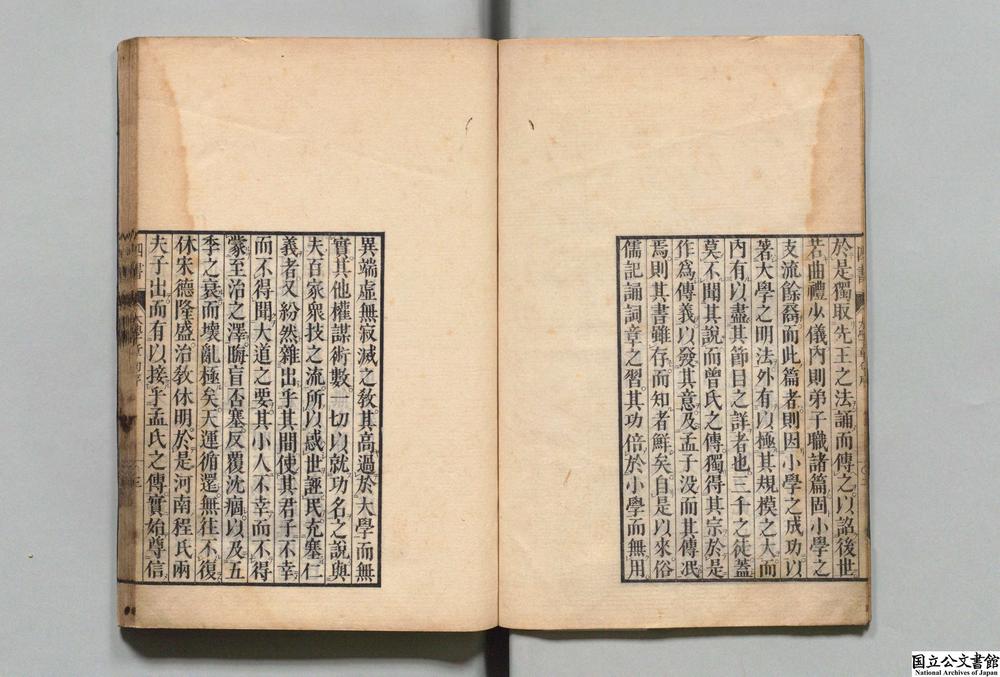 於是獨取先王之法誦而傳之以詔後世
若曲禮少儀內則弟子職諸篇固小學之
支流餘裔而此篇者則因小學之成功以
著大學之明法外有以極其規模之大而
內有以盡其節目之詳者也三千之徒蓋
莫不聞其說而曾氏之傳獨得其宗於是
作爲傳義以發其意及孟子没而其傳泯
焉則其書雖存而知者鮮矣自是以來俗
儒記誦詞章之習其功倍於小學而無用
異端虛無寂滅之教其高過於大學而無
實其他權謀術數一切以就功名之說與
夫百家衆技之流所以惑世誣民充塞仁
義者又紛然雜出乎其間使其君子不幸
而不得聞大道之要其小人不幸而不得
蒙至治之澤晦盲否塞反覆沈痼以及五
季之衰而壞亂極矣天運循環無往不復
休宋德隆盛治教休明於是河南程氏兩
夫子出而有以接乎孟氏之傳實始尊信
四書
三
国立公文書館
National Archives of Japan